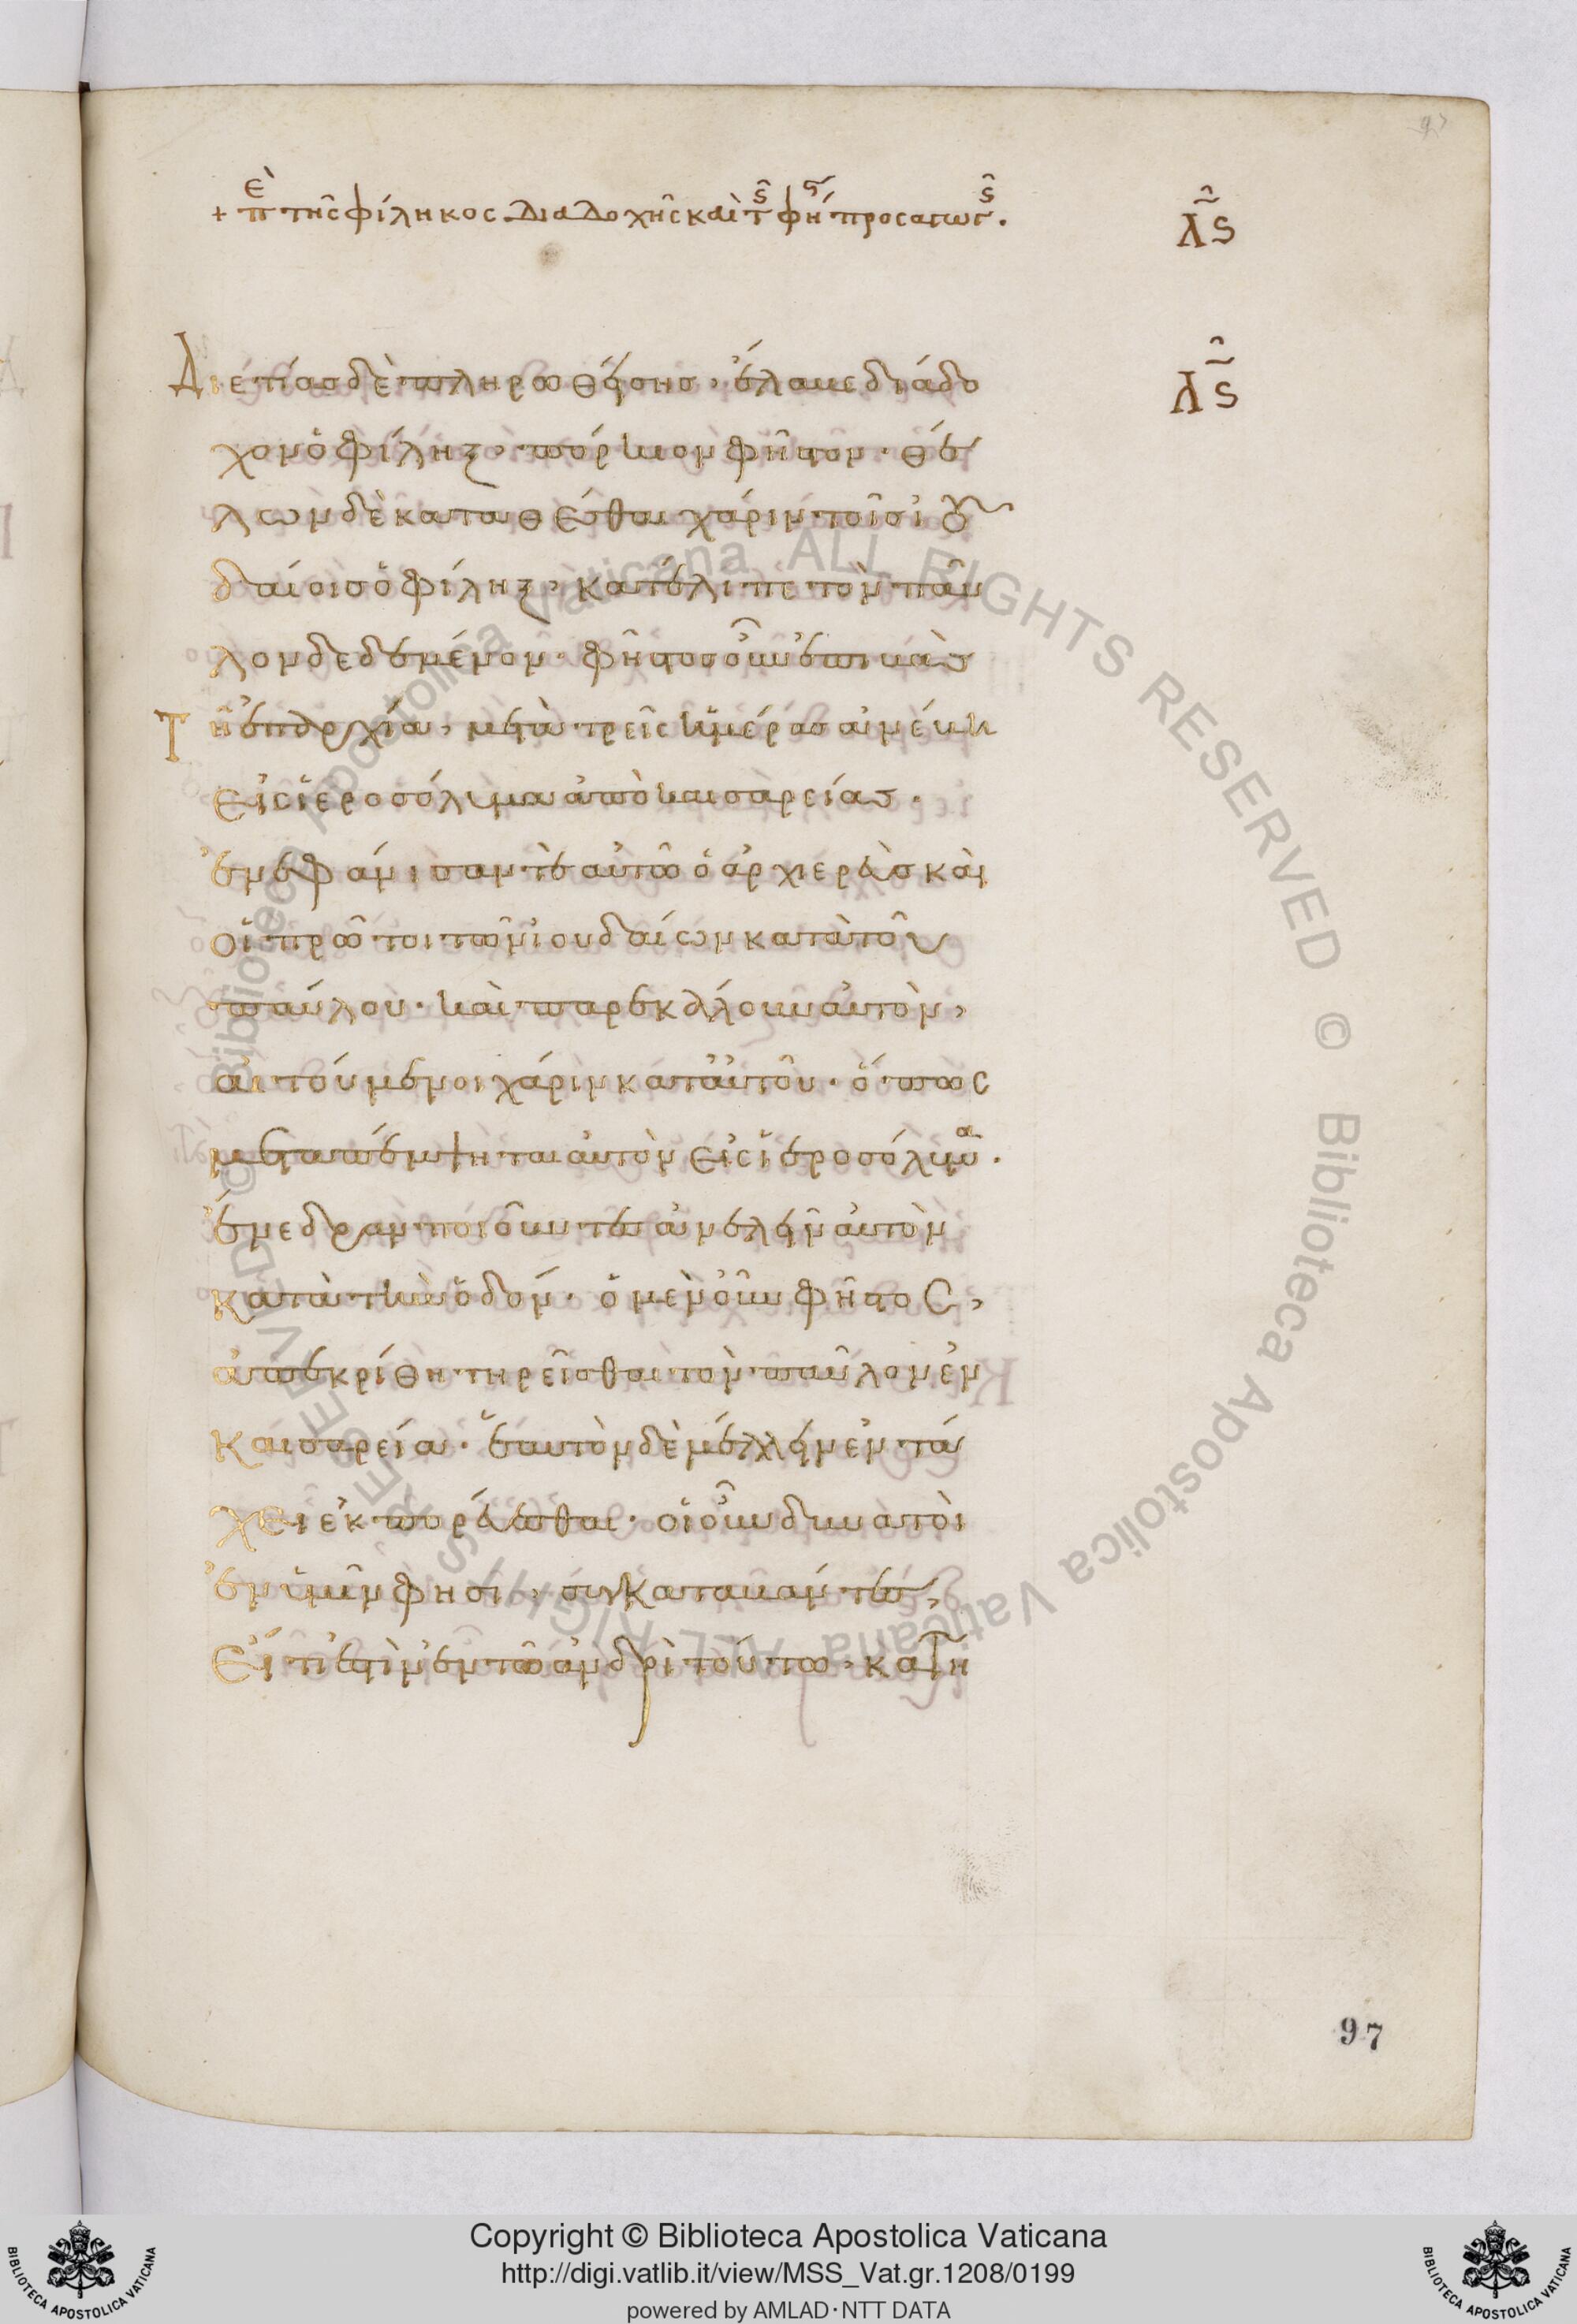 + ἐπὶ τῆς φίληκος διαδοχῆς καὶ τῆς φήστου προσαγωγῆς.
λς
Διετίας δὲ πληρωθείσης· ἔλαβε διάδο
λς
χον ὁ φίληξ, πόρκιον φῆστον· θέ
λων δὲ καταθέσθαι χάριν τοῖς ἰου
δαίοις ὁ φίληξ, κατέλιπε τὸν παῦ
λον δεδεμένον· φῆστος οὖν ἐπιβὰς
Τῆ ἐπαρχία, μετὰ τρεῖς ἡμέρας ἀνέβη
εἰς ἱεροσόλυμα ἀπὸ καισαρείας.
ἐνεφάνισαν τὲ αὐτῶ ὁ ἀρχιερεὺς καὶ
οἱ πρῶτοι τῶν ἰουδαίων κατὰ τοῦ
παύλου· καὶ παρεκάλουν αὐτὸν,
αἰτούμενοι χάριν κατ' αὐτοῦ· ὅπως
μεταπέμψηται αὐτὸν εἰς ἱεροσόλυμα.
ἐνέδραν ποιοῦντες ἀνελεῖν αὐτὸν
κατὰ τὴν ὁδόν· ὁ μὲν οὖν φῆστος,
ἀπεκρίθη τηρεῖσθαι τὸν παῦλον ἐν
καισαρεία· ἑαυτὸν δὲ μέλλειν ἐν τά
χει ἐκπορεύεσθαι· οἱ οὖν δυνατοὶ
ἐν ὑμῖν φησι, συγκαταβάντες,
εἴ τι ἐστὶν ἐν τῶ ἀνδρὶ τούτω, κατη
97
Copyright © Biblioteca Apostolica Vaticana
http://digi.vatlib.it/view/MSS_Vat.gr.1208/0199
powered by AMLAD·NTT DATA
© Biblioteca Apostolica Vaticana ALL RIGHTS RESERVED © Biblioteca Apostolica Vaticana ALL RIGHTS RESERVED
BIBLIOTECA APOSTOLICA VATICANA
BIBLIOTECA APOSTOLICA VATICANA